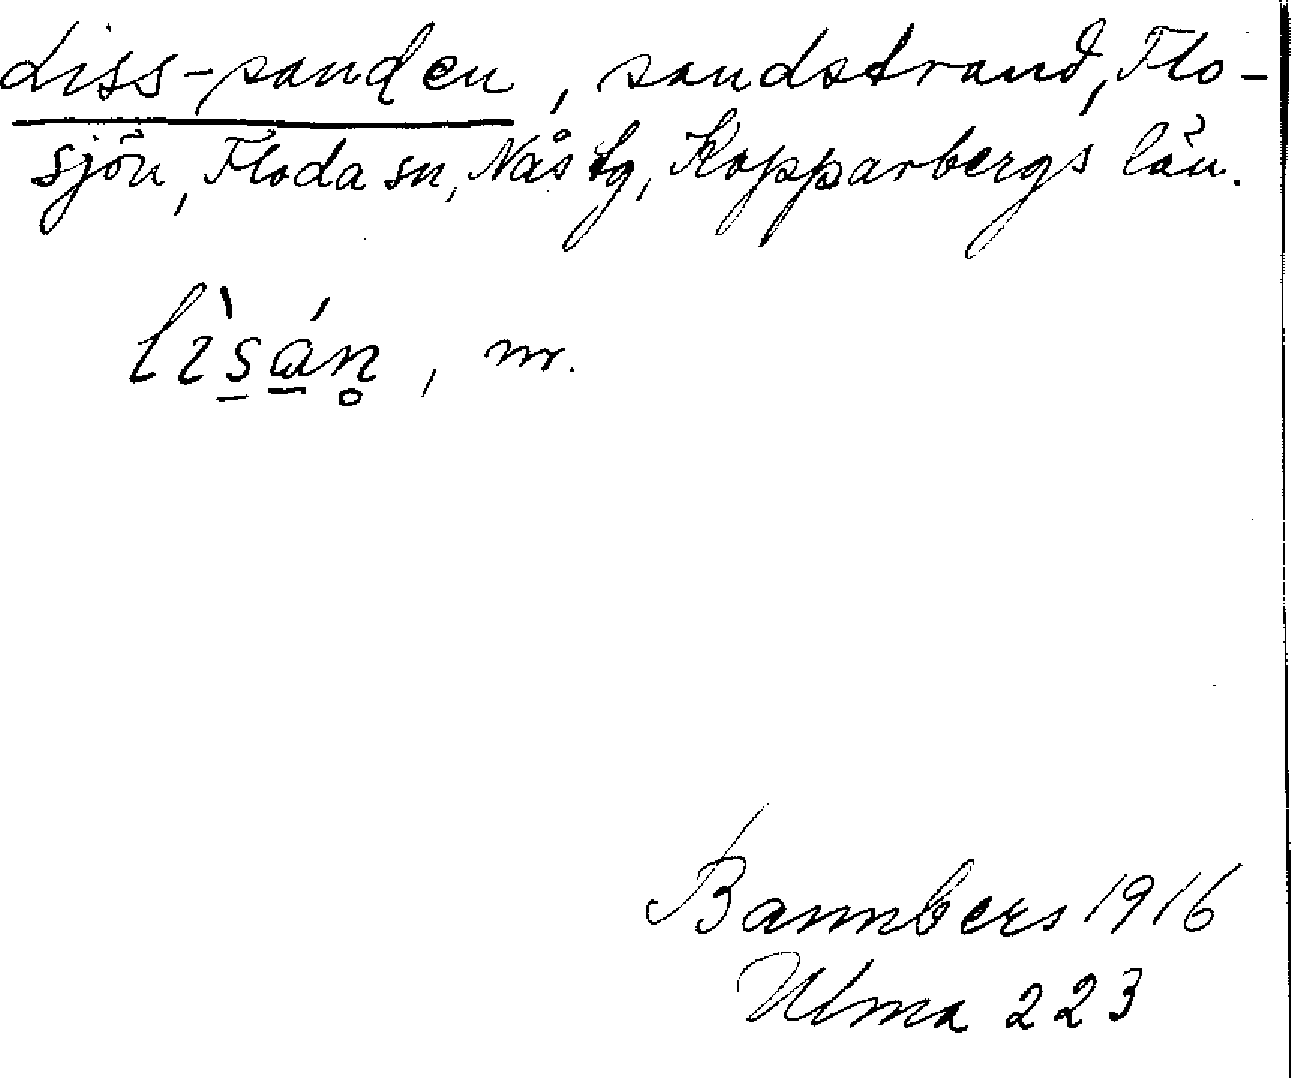 Liss-sanden, sandstrand, Flo-
sjön, Floda sn, Nås tg, Kopparbergs län.
lìsán̥, m.
Bannbers 1916
Ulma 223